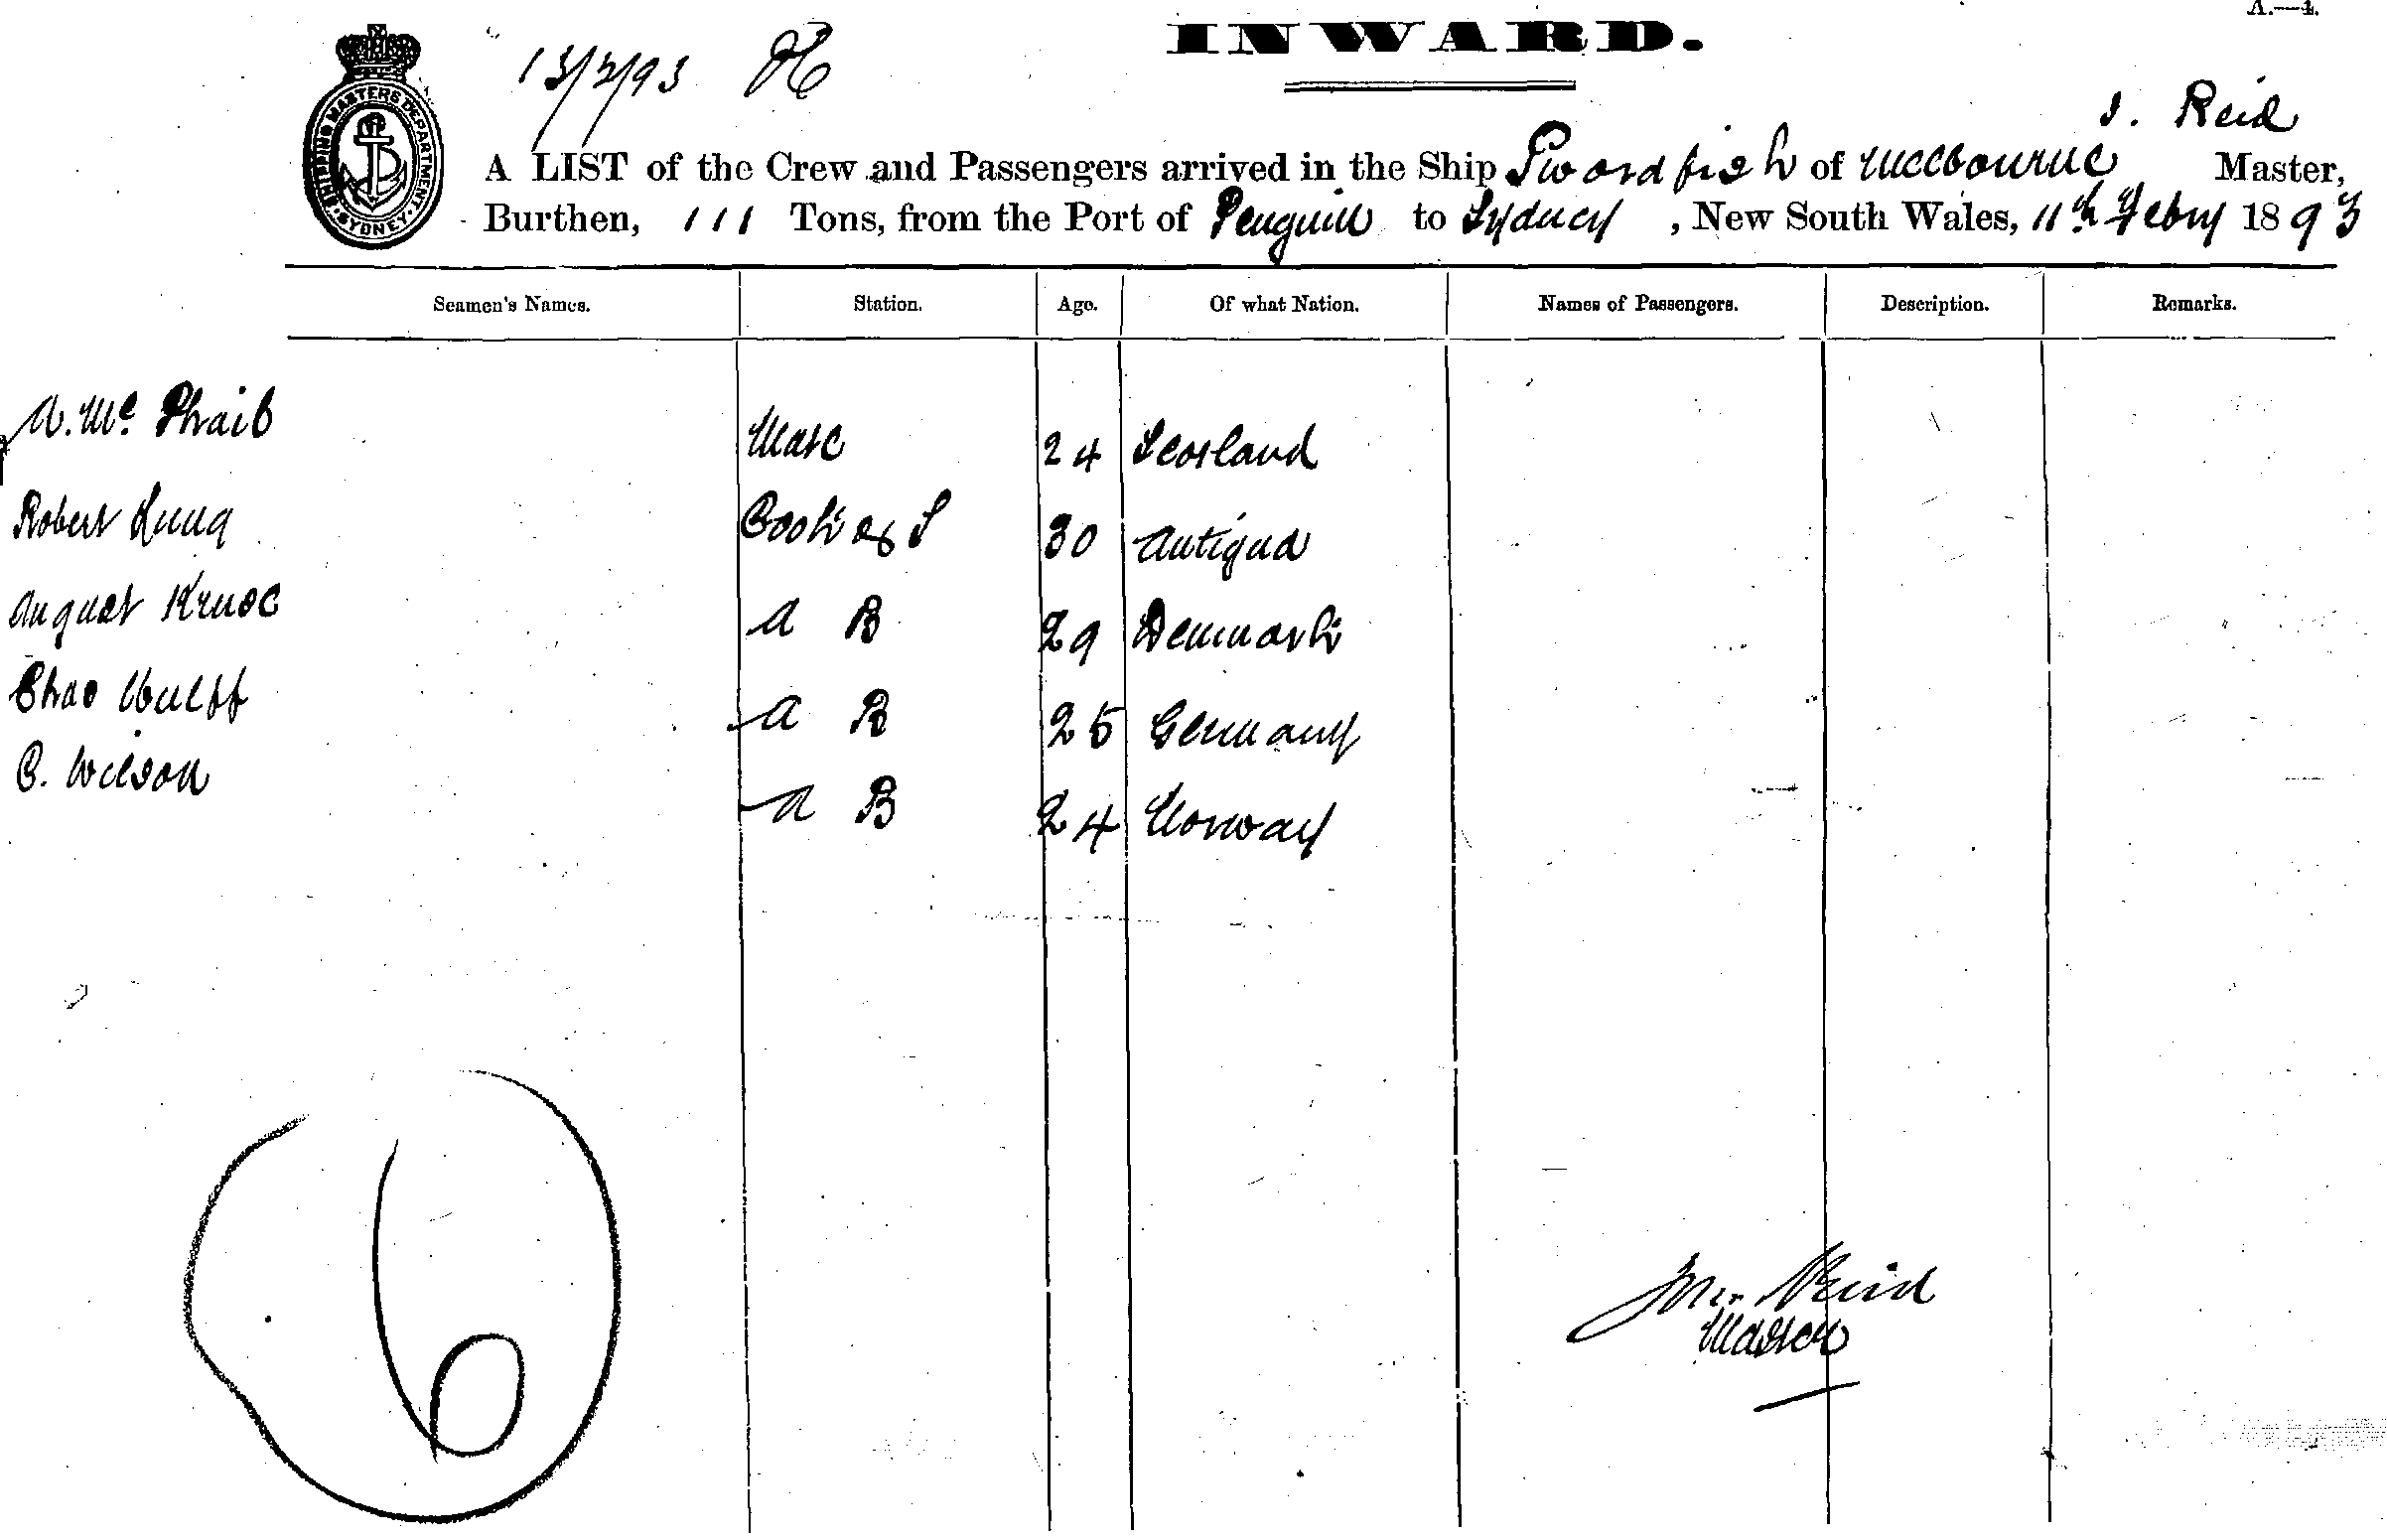 A.—4.
INWARD.
13/2/93
J. Reid
SHIPPING MASTERS DEPARTMENT. SYDNEY.
A LIST of the Crew and Passengers arrived in the Ship Swordfish of Melbourne Master,
Burthen, 111 Tons, from the Port of Penguin to Sydney, New South Wales, 11th Febry 1893
Seamen's Names. Station. Age. Of what Nation. Names of Passengers. Description. Remarks.
A. Mc. Phail Mate 24 Scotland
Robert Cook & S 30 Antigua
August Kruse A B 29 Denmark
Chas Wulff A B 25 Germany
C. Wilson A B 24 Norway
6
Jno. Reid
Master